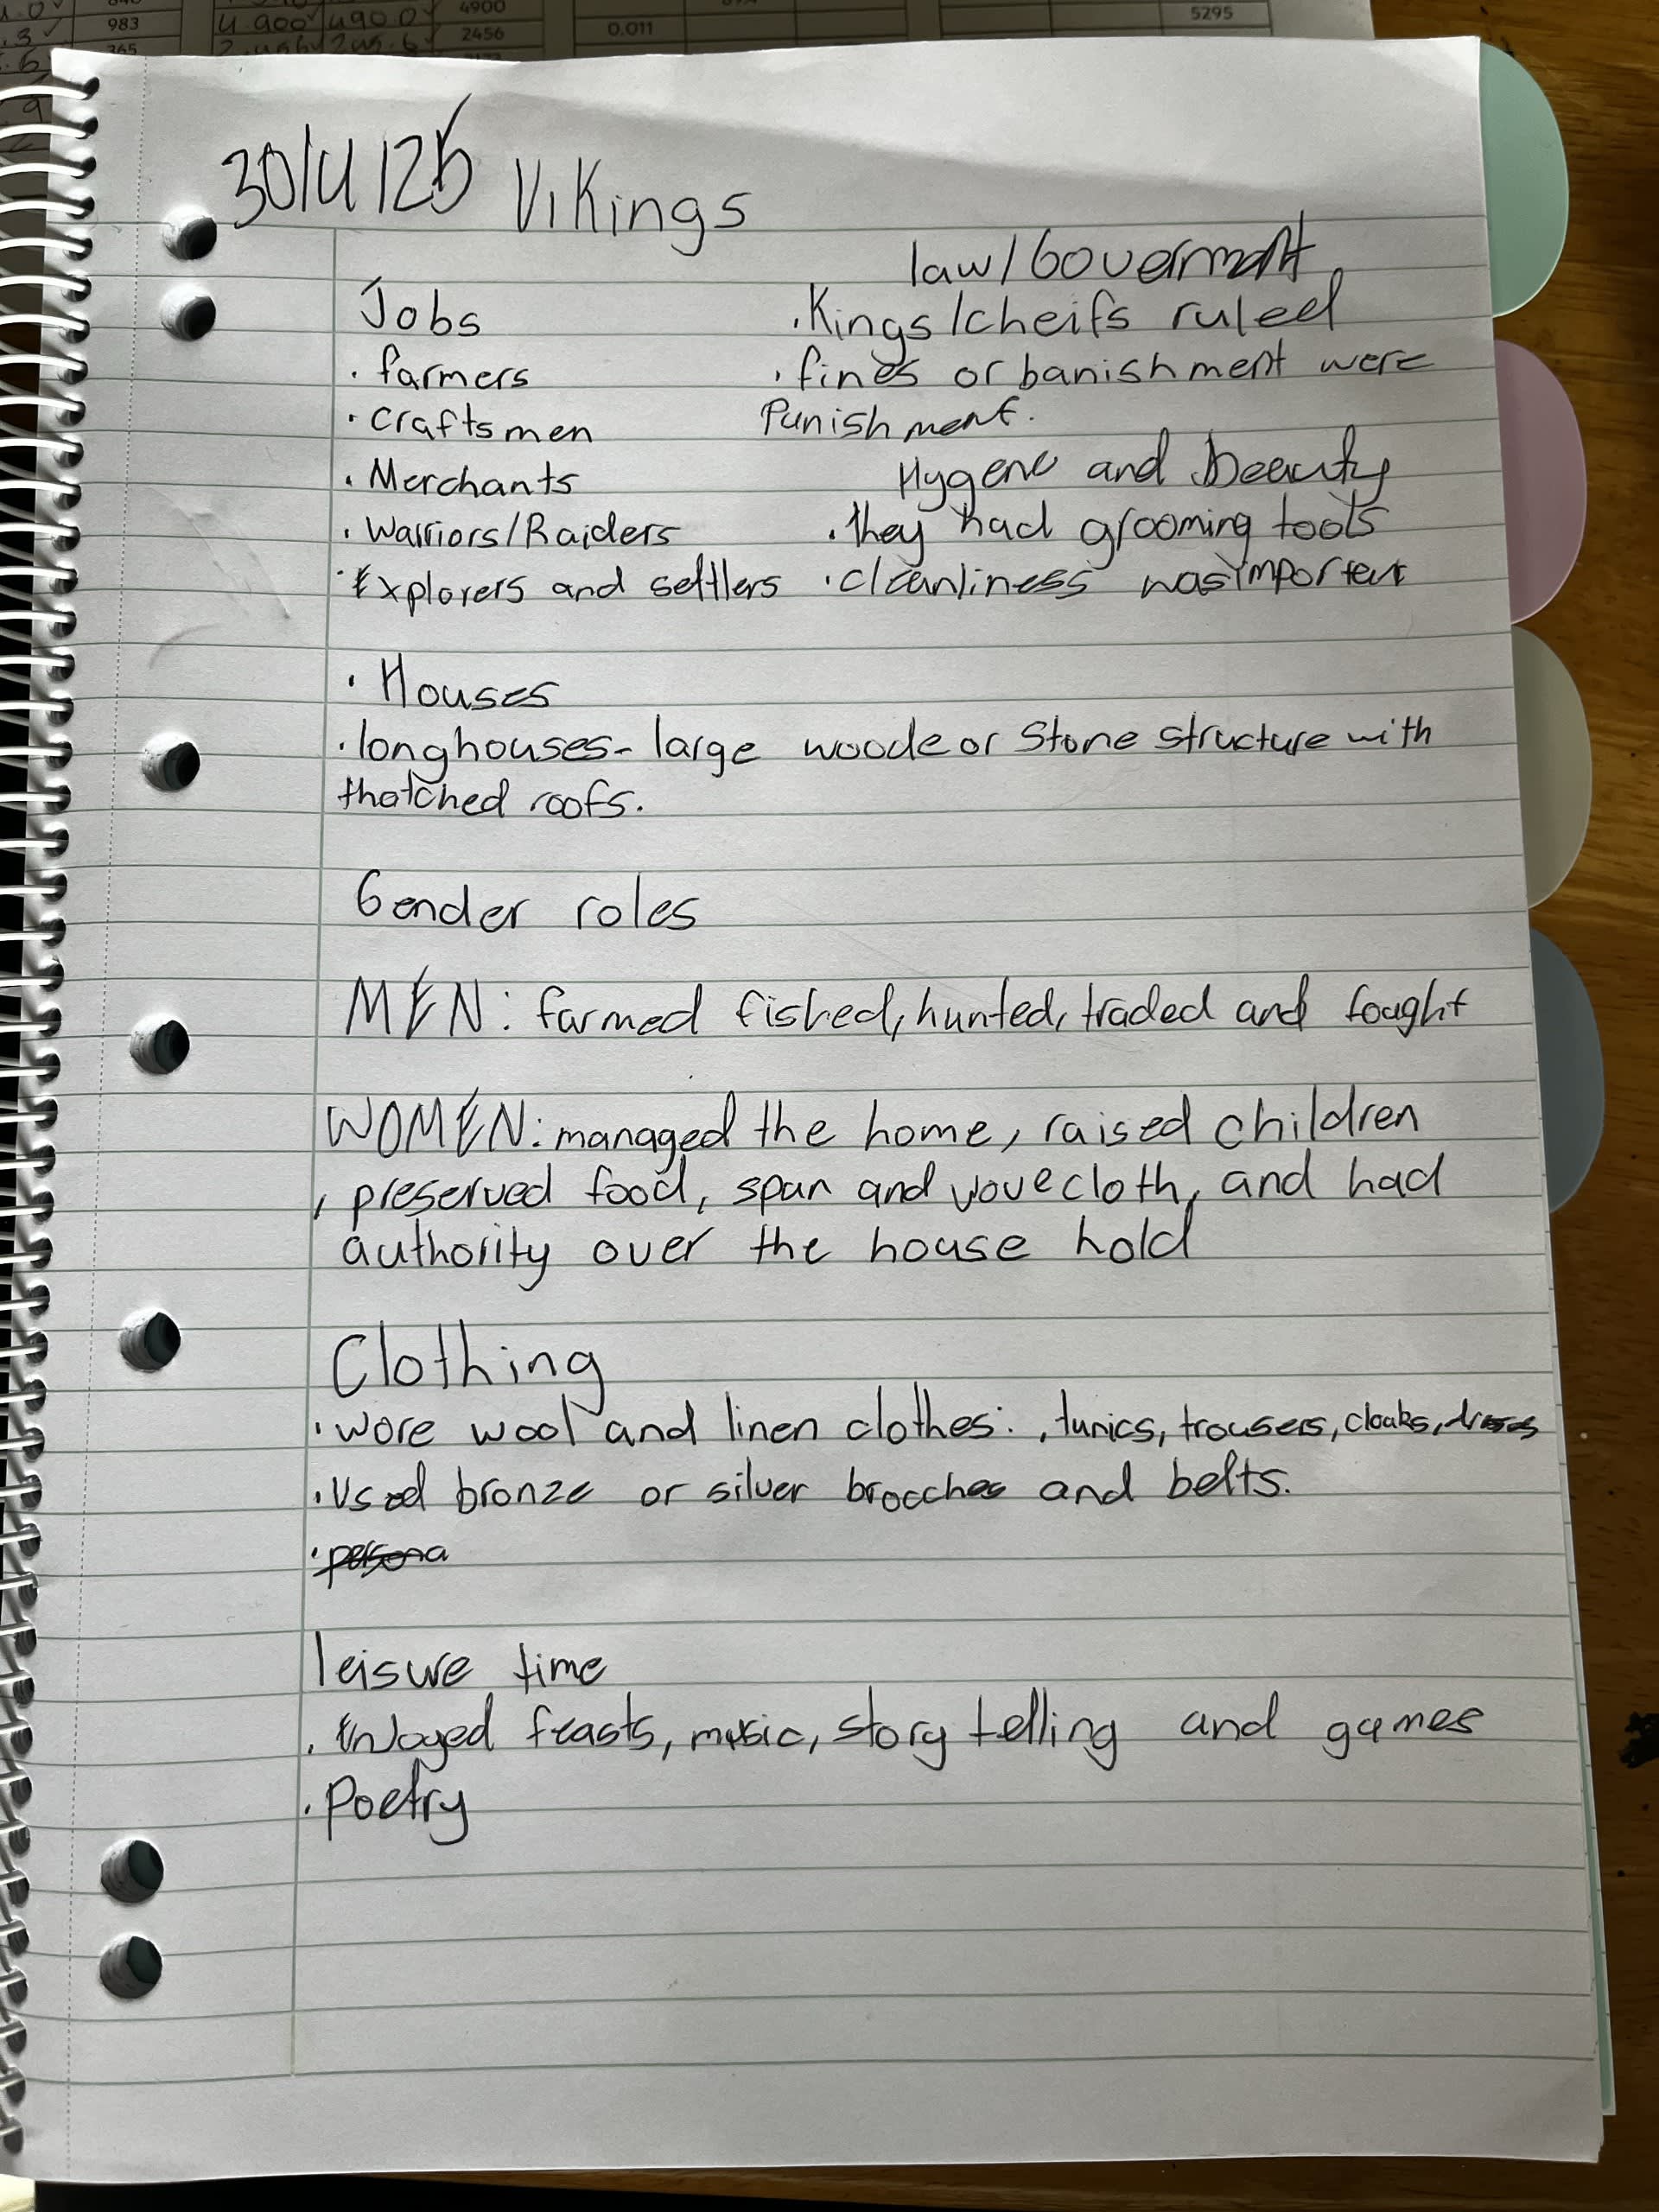 983
4.900
490.0
4900
2456
0.011
5295
30/4/25 Vikings
Jobs
· farmers
· craftsmen
· Merchants
· Warriors/Raiders
· Explorers and settlers
law/Government
· Kings/cheifs ruled
· fines or banishment were
Punishment.
Hygene and beauty
· they had grooming tools
· cleanliness was important
· Houses
· longhouses- large woode or stone structure with
thatched roofs.
Gender roles
MEN: farmed fished, hunted, traded and fought
WOMEN: managed the home, raised children
, preserved food, spun and wove cloth, and had
authority over the house hold
Clothing
· wore wool and linen clothes: , tunics, trousers, cloaks, dresses
· Used bronze or silver brooches and belts.
· persona
leisure time
· Enjoyed feasts, music, story telling and games
· Poetry